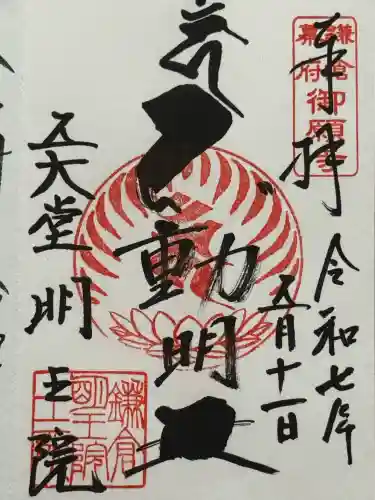 奉拝
鎌倉
幕府
御願寺
令和七年
五月十一日
不動明王
五大堂明王院
鎌倉
明王院